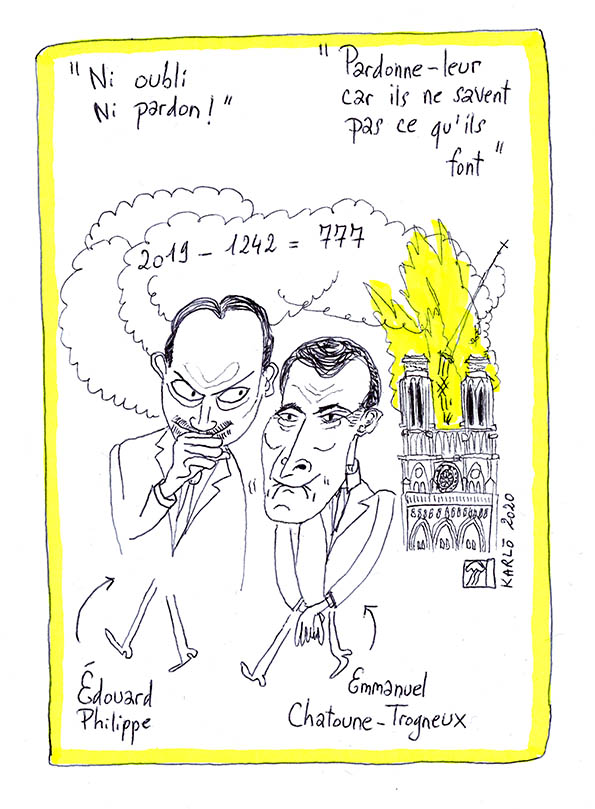 "Ni oubli
Ni pardon!"
"Pardonne-leur
car ils ne savent
pas ce qu'ils
font"
2019 - 1242 = 777
KARLŌ 2020
Édouard
Philippe
Emmanuel
Chatoune-Trogneux